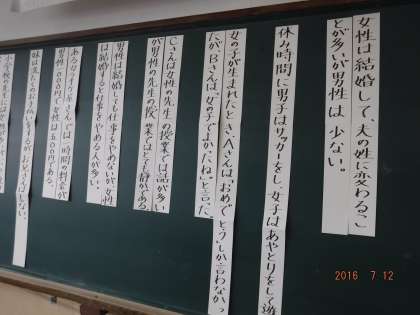 女性は結婚して、夫の姓に変わるこ
とが多いが男性は少ない。
休み時間に男子はサッカーをし、女子はあやとりをして遊
女の子が生まれたとき、Aさんは「おめでとう」しか言わなかっ
たが、Bさんは、「女の子でよかったね。」と言った。
Cさんは女性の先生の授業では話が多い
が男性の先生の授業ではとても静かである
男性は結婚しても仕事をやめないが、女性
は結婚すると仕事をやめる人が多い。
あるカラオケボックスでは一時間の料金が
男性1000円で女性は800円である。
2016 7 12